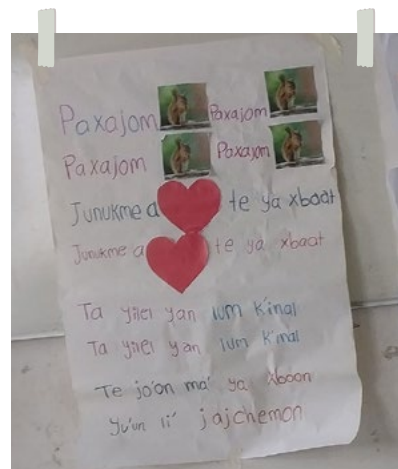 Paxajom Paxajom
Paxajom Paxajom
Junukme a te ya xbaat
Junukme a te ya xbaat
Ta yilel yan lum k'inal
Ta yilel yan lum k'inal
Te jo'on ma' ya xboon
Yu'un li' jajchemon